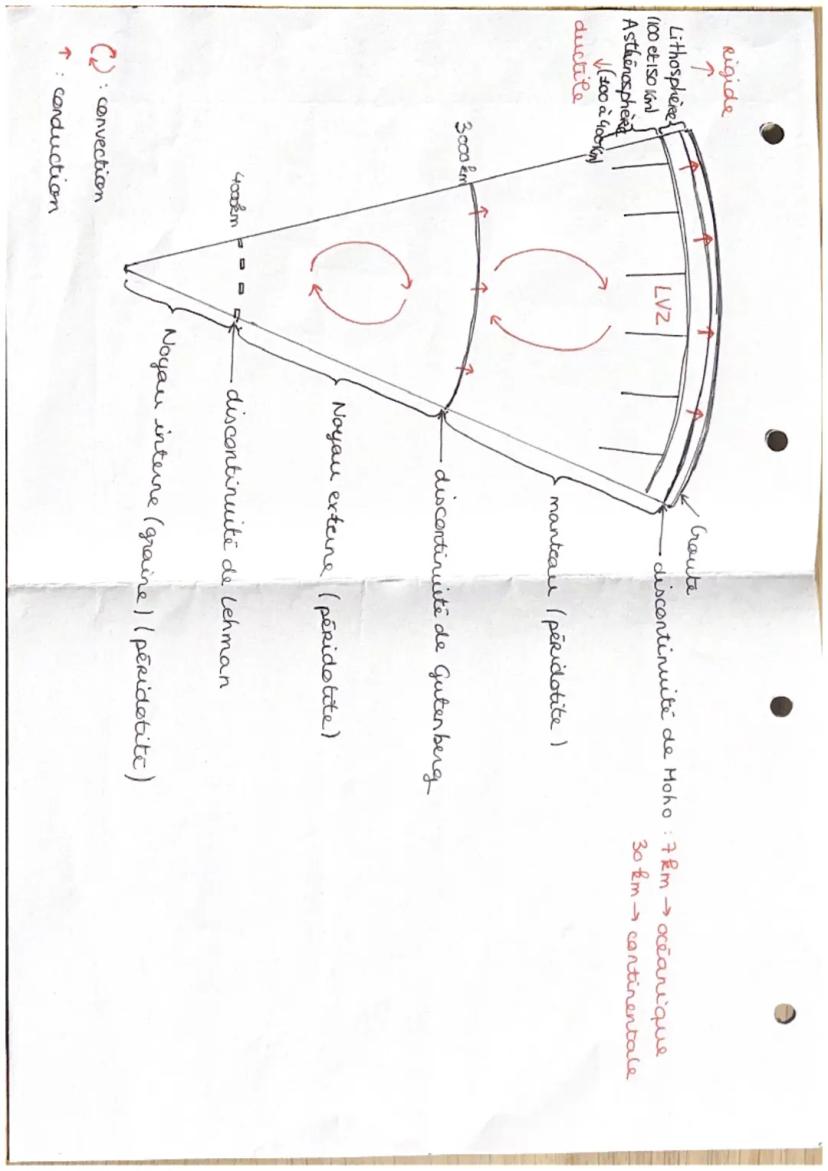 rigide
Lithosphère
(100 et 150 Km)
Asthénosphère
(200 à 400Km)
ductile
Croute
discontinuité de Moho : 7 km → océanique
30 km → continentale
LVZ
manteau (péridotite)
3000km
discontinuité de Gutenberg
Noyau externe (péridotite)
4000km
discontinuité de Lehman
Noyau interne (graine) (péridotite)
: convection
↑ : conduction